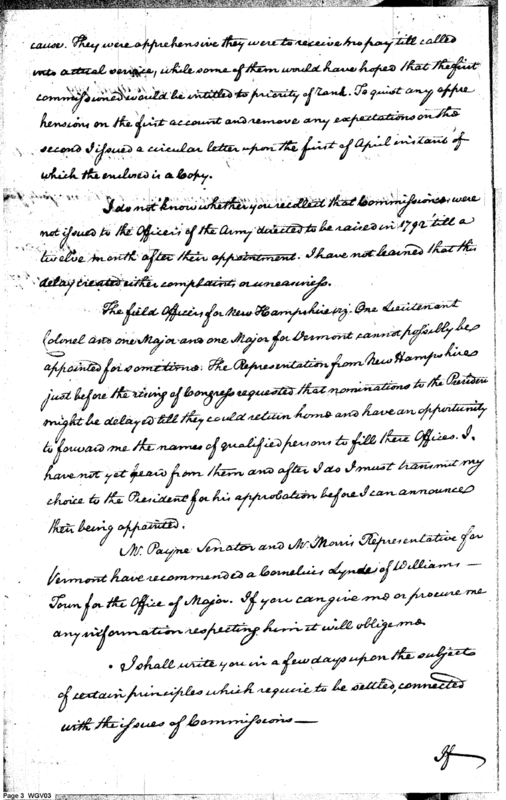 cause. They were apprehensive they were to receive no pay till called
into actual service, while some of them would have hoped that the first
commissioned would be intitled to priority of rank. To quiet any appre
hensions on the first account and remove any expectations on the
second I issued a circular letter upon the first of April instant of
which the enclosed is a Copy.
I do not know whether you recollect that Commissions were
not issued to the Officers of the Army directed to be raised in 1792 till a
twelve month after their appointment. I have not learned that this
delay created either complaint or uneasiness.
The field Officers for New Hampshire vzt. One Lieutenant
Colonel and one Major and one Major for Vermont cannot possibly be
appointed for sometime. The Representation from New Hampshire
just before the rising of Congress requested that nominations to the President
might be delayed till they could return home and have an opportunity
to forward me the names of qualified persons to fill these Offices. I
have not yet heard from them and after I do I must transmit my
choice to the President for his approbation before I can announce
their being appointed.
Mr. Payne Senator and Mr. Morris Representative for
Vermont have recommended a Cornelius Lynde of Williams—
Town for the Office of Major. If you can give me or procure me
any information respecting him it will oblige me.
I shall write you in a few days upon the subject
of certain principles which require to be settled, connected
with the issues of Commissions—
If
Page 3 WGV03